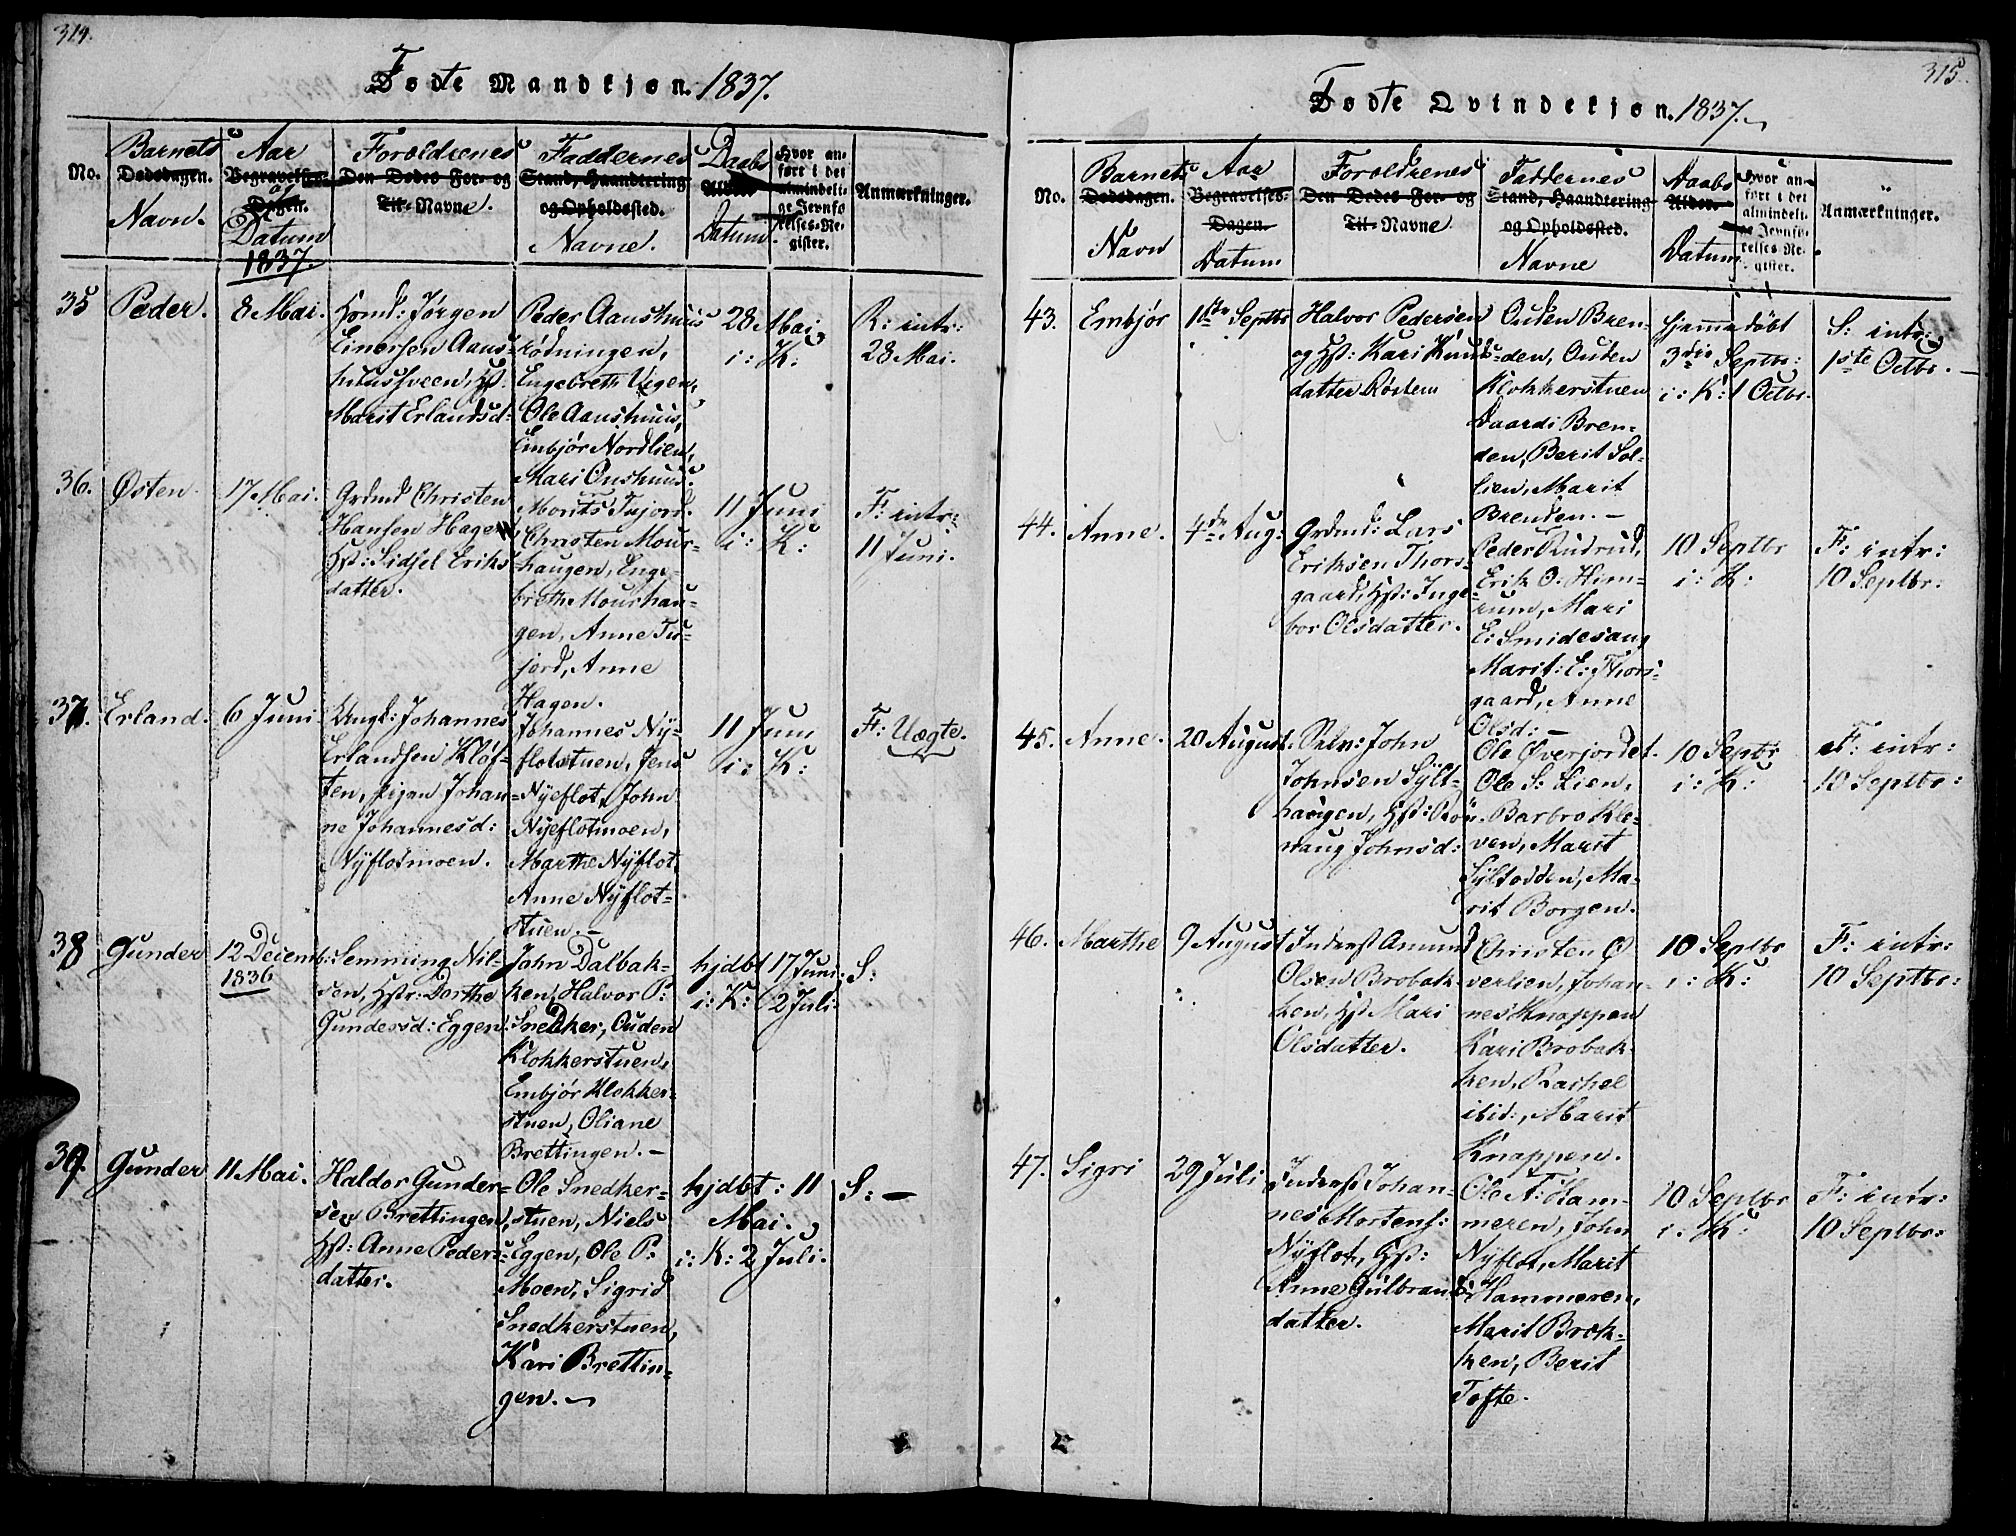 314.
Fødte Mandkjøn. 1837.
No.
Barnets
Dødsdagen.
Navn.
Aar
Begravelses-
og
Dagen.
Datum
1837.
Foreldrenes
Den Dødes For- og
Til-Navne.
Faddernes
Stand, Haandtering
og Opholdssted.
Navne.
Daabs
Alder.
Datum.
Hvor an-
ført i det
almindeli-
ge Jevnfø-
relses-Re-
gister.
Anmærkninger.
35
Peder.
8 Mai.
Huusmd: Jørgen
Einersen Aans-
huussveen, Hst:
Marit Erlandsd:
Peder Aanshuus
rødningen,
Engebreth Vigen,
Ole Aanshuus,
Embjør Nordlien,
Mari Onshuus.
28 Mai
i: K:
R: intr:
28 Mai.
36.
Østen.
17 Mai.
Grdmd Christen
Hansen Hagen
Hst: Sidsel Eriks
datter.
Morits Tujord.
Christen Mour-
haugen, Enge-
breth Mourhau-
gen, Anne Tu-
jord, Anne
Hagen.
11 Juni
i: K:
F: intr:
11 Juni.
37.
Erland.
6 Juni
Ungk: Johannes
Erlandsen Kløf-
ten, pigen Johan-
ne Johannesd:
Nyflotmoen.
Johannes Ny-
flotstuen, Jens
Nyeflot, John
Nyeflotmoen,
Marthe Nyflot,
Anne Nyflot-
stuen. -
11 Juni
i: K:
F: Uægte.
38
Gunder
12 Decemb:
1836
Semming Nil-
sen, Hstr: Dorthe
Gundersd: Eggen.
John Dalbak-
ken, Halvor P:
Snedker, Ouden
Klokkerstuen,
Embjør Klokker-
stuen, Oliane
Brettingen. -
hjdbt 17 Juni:
i: K: 2 Juli:
S:
39.
Gunder
11 Mai.
Haldor Gunder-
sen Brettingen,
Hst: Anne Peders-
datter.
Ole Snedker-
stuen, Niels
Eggen, Ole P:
Moen, Sigrid
Snedkerstuen,
Kari Brettin-
gen. -
hjdbt: 11
Mai.
i: K: 2 Juli:
S: -
315.
Fødte Qvindekjøn. 1837.
No.
Barnets
Dødsdagen.
Navn
Aar
Begravelses-
Dagen.
Datum
Foreldrenes
Den Dødes For- og
Til-Navne
Faddernes
Stand, Haandtering
og Opholdssted.
Navne
Daabs
Alder.
Datum
Hvor an-
ført i det
almindeli-
ge Jevnfø-
relses-Re-
gister.
Anmærkninger.
43.
Embjør
1ste Septbr
Halvor Pedersen
og Hst: Kari Knuds-
datter Røsten
Ouden Bren-
den, Ouden
Klokkerstuen
Daardi Bren-
den, Berit Sol-
lien, Marit
Brenden. -
hjemmedøbt
3die Septbr:
i: K: 1 Octbr.
S: intr:
1ste Octbr. -
44.
Anne.
4de Aug:
Grdmd: Lars
Eriksen Thors-
gaard, Hst: Inge-
bor Olsdatter.
Peder Rudrud,
Erik O: Him-
rum, Mari
E: Smidesang
Marit: E: Thors-
gaard, Anne
Olsd: -
10 Septbr
i: K:
F: intr:
10 Septbr:
45.
Anne.
20 August.
Selv: John
Johnsen Sylt-
haugen, Hst: Røn-
naug Johnsd:
Ole Øverjordet.
Ole S: Lien,
Barbro Kle-
ven, Marit
Syltodden, Ma-
rit Borgen.
10 Septbr
i: K:
F: intr:
10 Septbr:
46.
Marthe
9 August
Inderst Amund
Olsen Brobak-
ken, Hst Mari
Olsdatter.
Christen Ø
verlien, Johan-
nes Knappen
Kari Brobak-
ken, Rachel
ibid:, Marit
Knappen.
10 Septbr
i: K:
F: intr:
10 Septbr:
47.
Sigri
29 Juli
Inderst Johan-
nes Mortens:
Nyflot, Hst:
Anne Gulbrands
datter.
Ole A: Ham-
meren, John
Nyflot, Marit
Hammeren,
Marit Brok-
ken, Berit
Tofte.
10 Septbr
i: K:
F: intr:
10 Septbr: